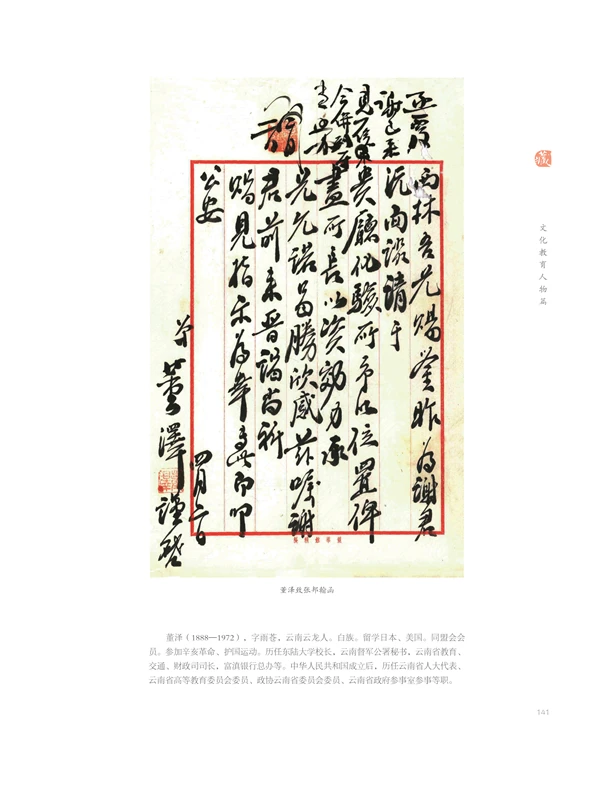 西林吾兄賜鑒昨為謝君
請于
貴廳化驗所予以位置俾
盡所長以資効力承
兄允諾曷勝欣感茲囑謝
君前來晉謁尚祈
賜見指示為幸專此即叩
公安
弟董澤謹啓
四月六日
文化教育人物篇
董泽致张邦翰函
董泽（1888—1972），字雨苍，云南云龙人。白族。留学日本、美国。同盟会会
员。参加辛亥革命、护国运动。历任东陆大学校长，云南督军公署秘书，云南省教育、
交通、财政司司长，富滇银行总办等。中华人民共和国成立后，历任云南省人大代表、
云南省高等教育委员会委员、政协云南省委员会委员、云南省政府参事室参事等职。
141